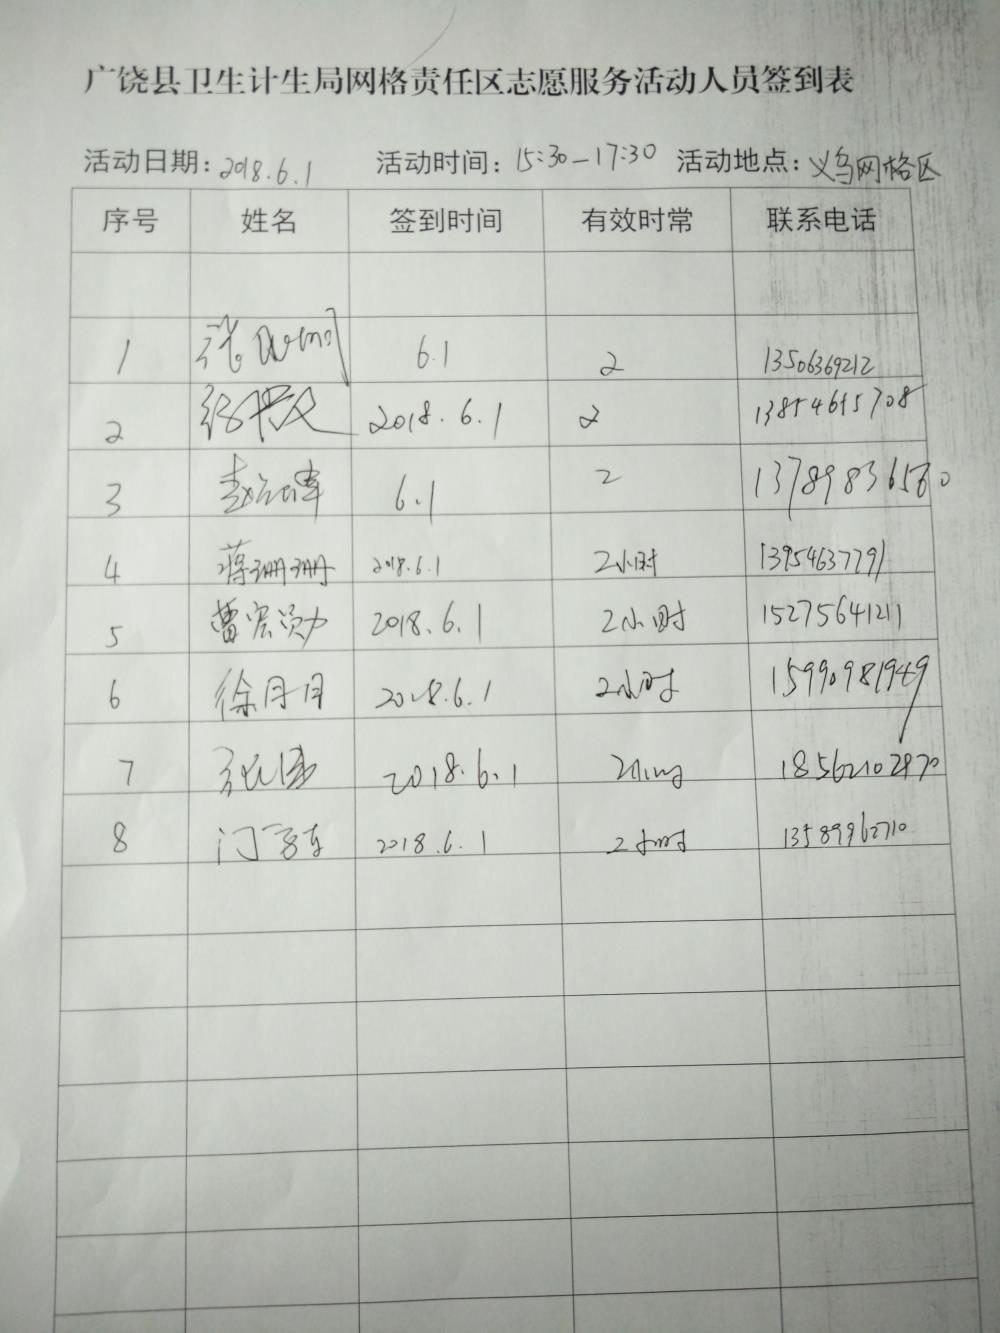 广饶县卫生计生局网格责任区志愿服务活动人员签到表
活动日期: 2018.6.1 活动时间: 15:30-17:30 活动地点: 义乌网格区
序号 姓名 签到时间 有效时常 联系电话
1 张 6.1 2 13506369212
2 2018.6.1 2 13854615708
3 6.1 2 13789836560
4 蒋珊珊 2018.6.1 2小时 13954637791
5 曹宏勋 2018.6.1 2小时 15275641211
6 徐月月 2018.6.1 2小时 15990981949
7 2018.6.1 2小时 18562102970
8 门 2018.6.1 2小时 13589962710